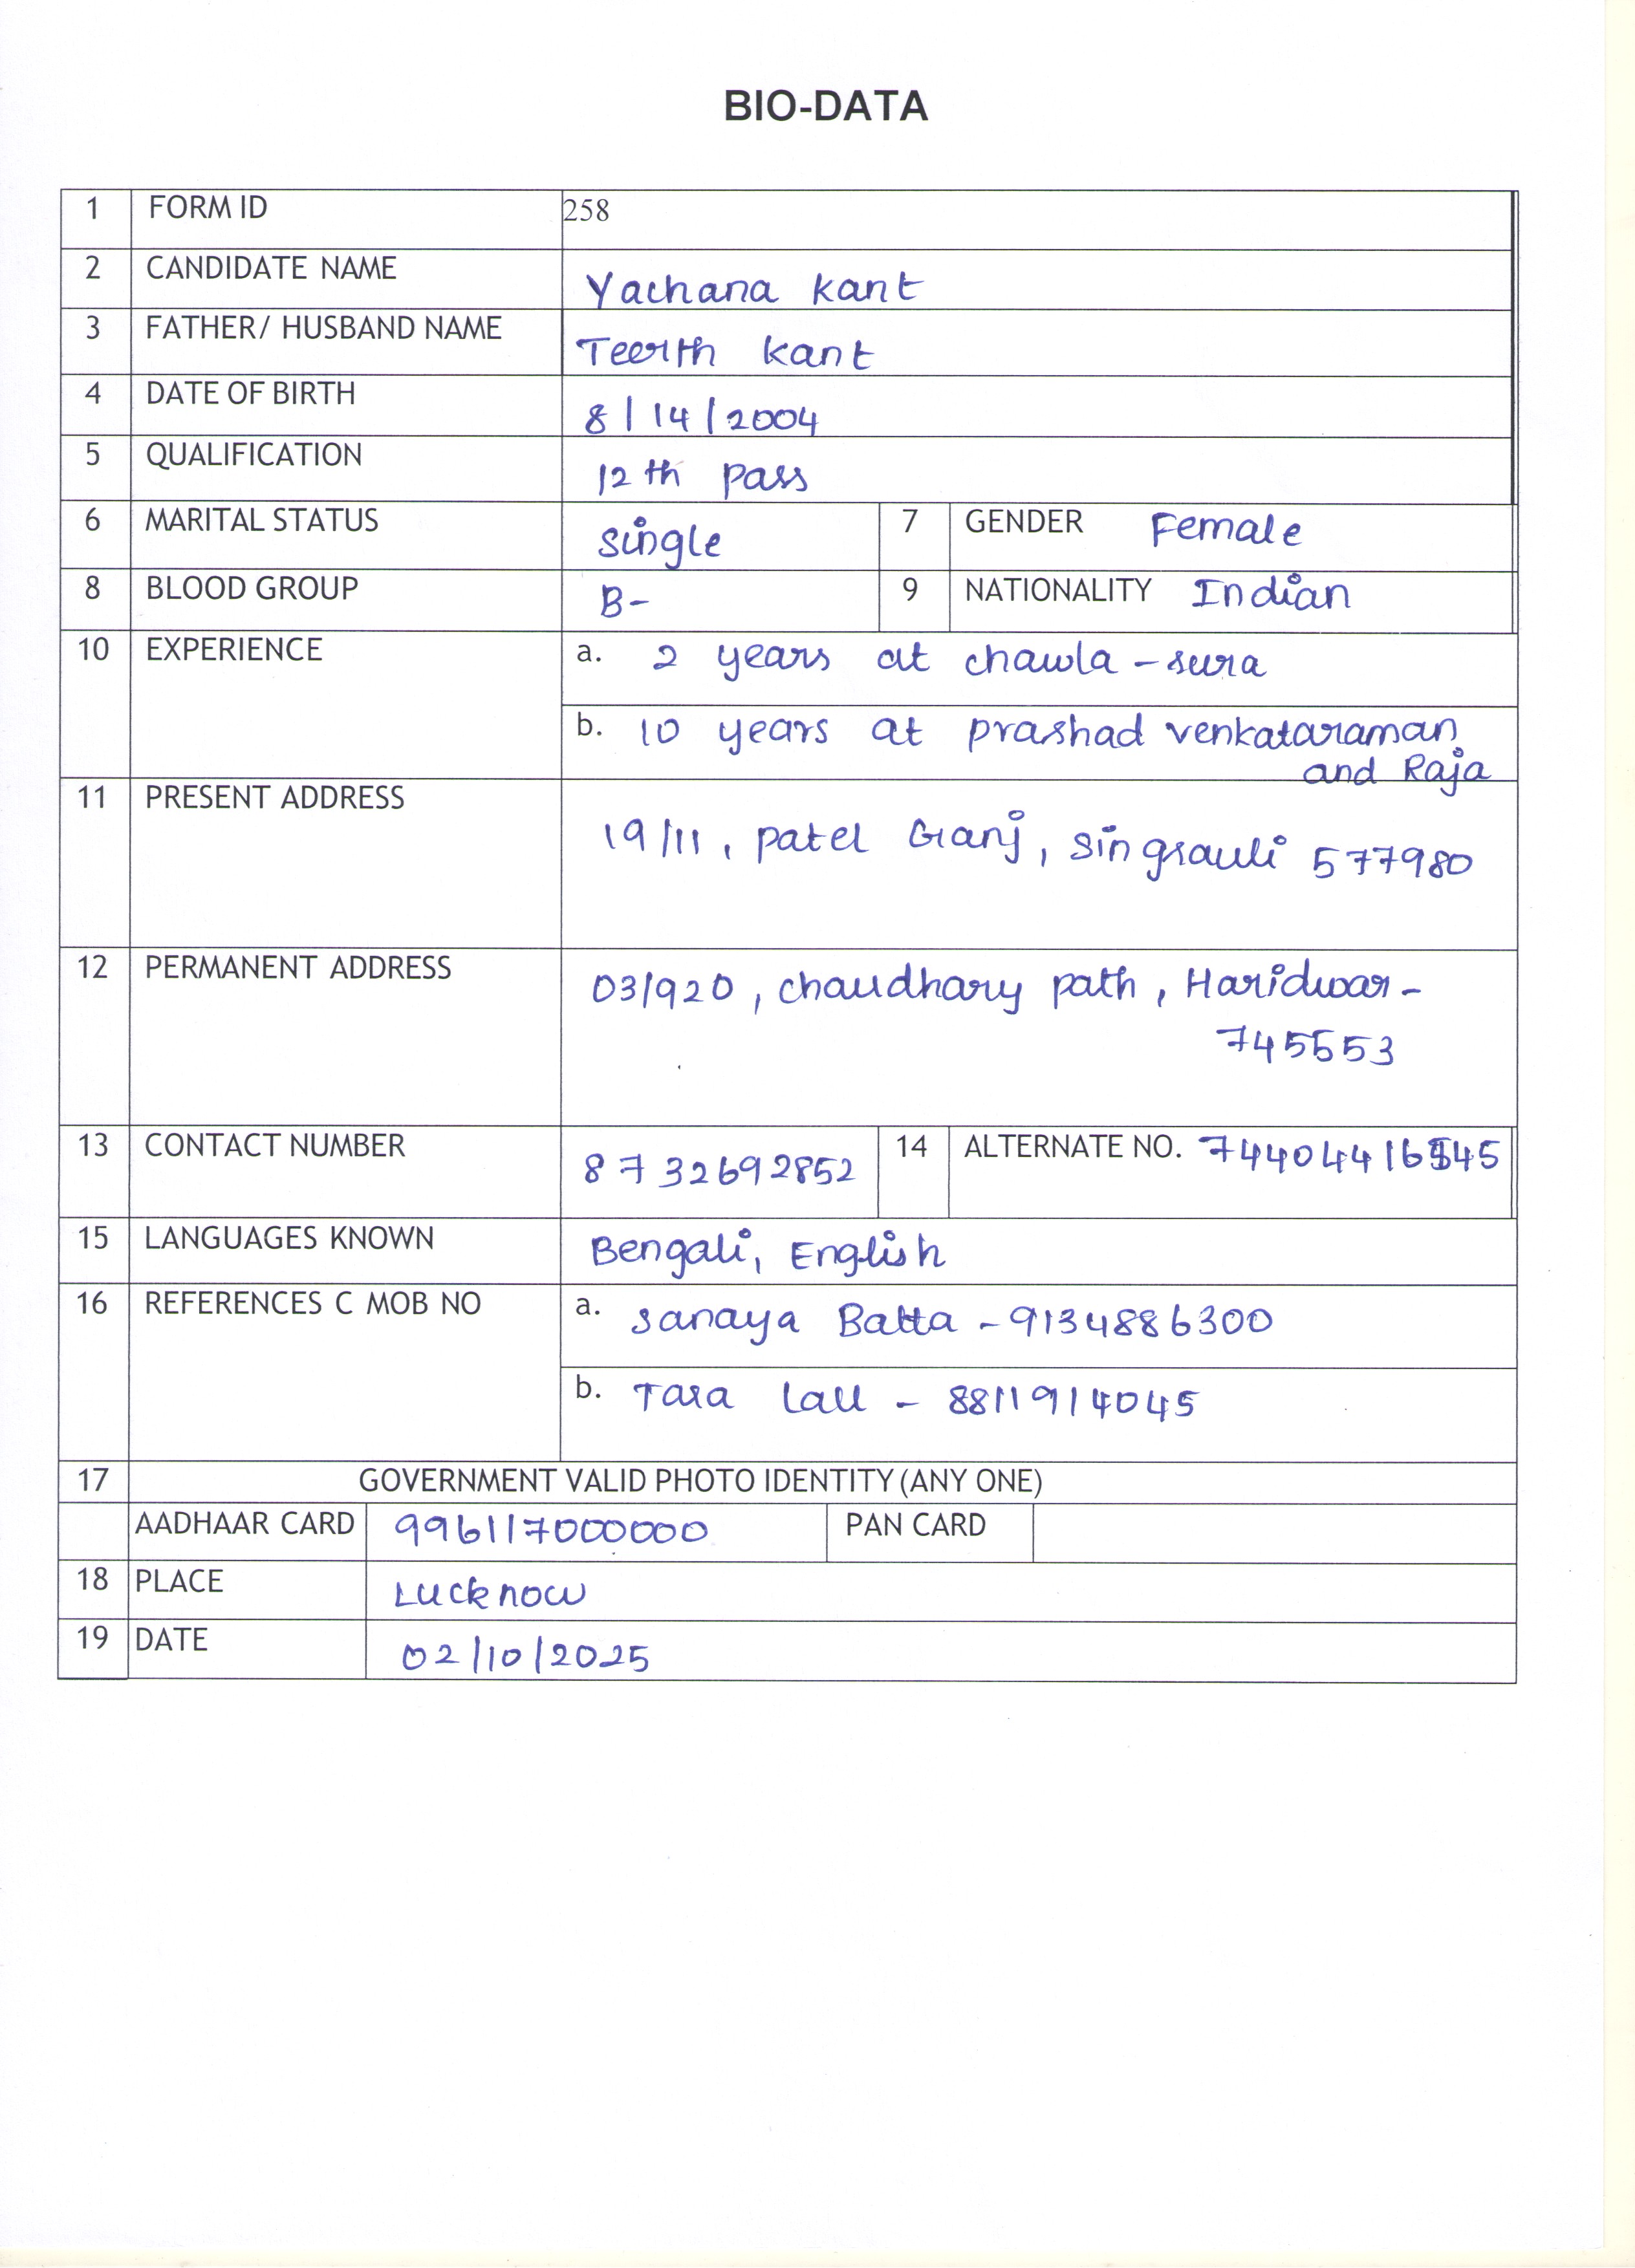 BIO-DATA
1 FORM ID 258
2 CANDIDATE NAME Yachana Kant
3 FATHER/ HUSBAND NAME Teerth Kant
4 DATE OF BIRTH 8/14/2004
5 QUALIFICATION 12th pass
6 MARITAL STATUS Single 7 GENDER Female
8 BLOOD GROUP B- 9 NATIONALITY Indian
10 EXPERIENCE a. 2 years at chawla - sura
b. 10 years at prashad venkataraman
and Raja
11 PRESENT ADDRESS
19/11, Patel Ganj, Singrauli 577980
12 PERMANENT ADDRESS 03/920, chaudhary path, Haridwar-
745553
13 CONTACT NUMBER 8732692852 14 ALTERNATE NO.
15 LANGUAGES KNOWN Bengali, English
16 REFERENCES C MOB NO a. Sanaya Batta - 9134886300
b. Tara Lall - 8811914045
17 GOVERNMENT VALID PHOTO IDENTITY (ANY ONE)
AADHAAR CARD 996117000000 PAN CARD
18 PLACE Lucknow
19 DATE 02/10/2025